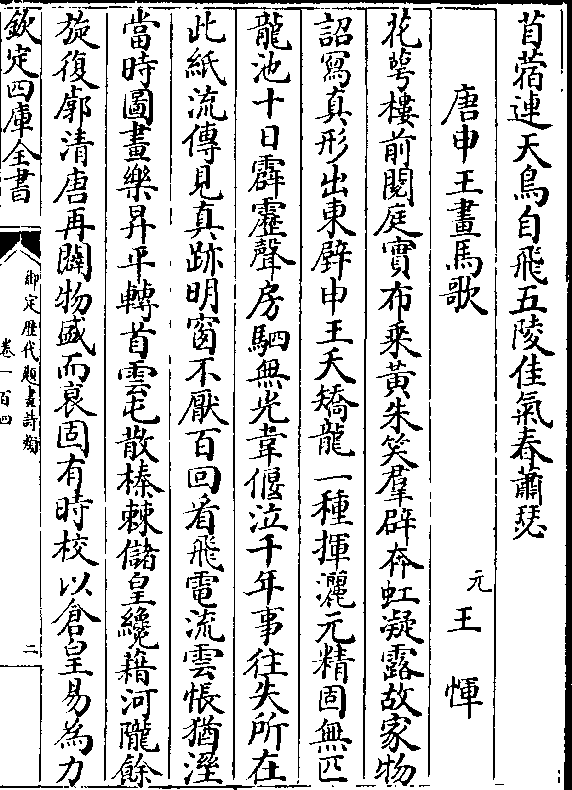 苜蓿連天鳥自飛五陵佳氣春蕭瑟
唐申王畫馬歌
元
王惲
花萼樓前閱庭實布乘黃朱笑羣辟奔虹凝露故家物
詔寫真形出東壁申王夭矯龍一種揮灑元精固無匹
龍池十日霹靂聲房駟無光韋偃泣千年事往失所在
此紙流傳見真跡明窗不厭百回看飛電流雲悵猶溼
當時圖畫樂昇平轉首雲屯散榛棘儲皇纔藉河隴餘
旋復廓清唐再闢物盛而衰固有時校以倉皇易為力
欽定四庫全書
御定歴代題畫詩類
卷一百四
二